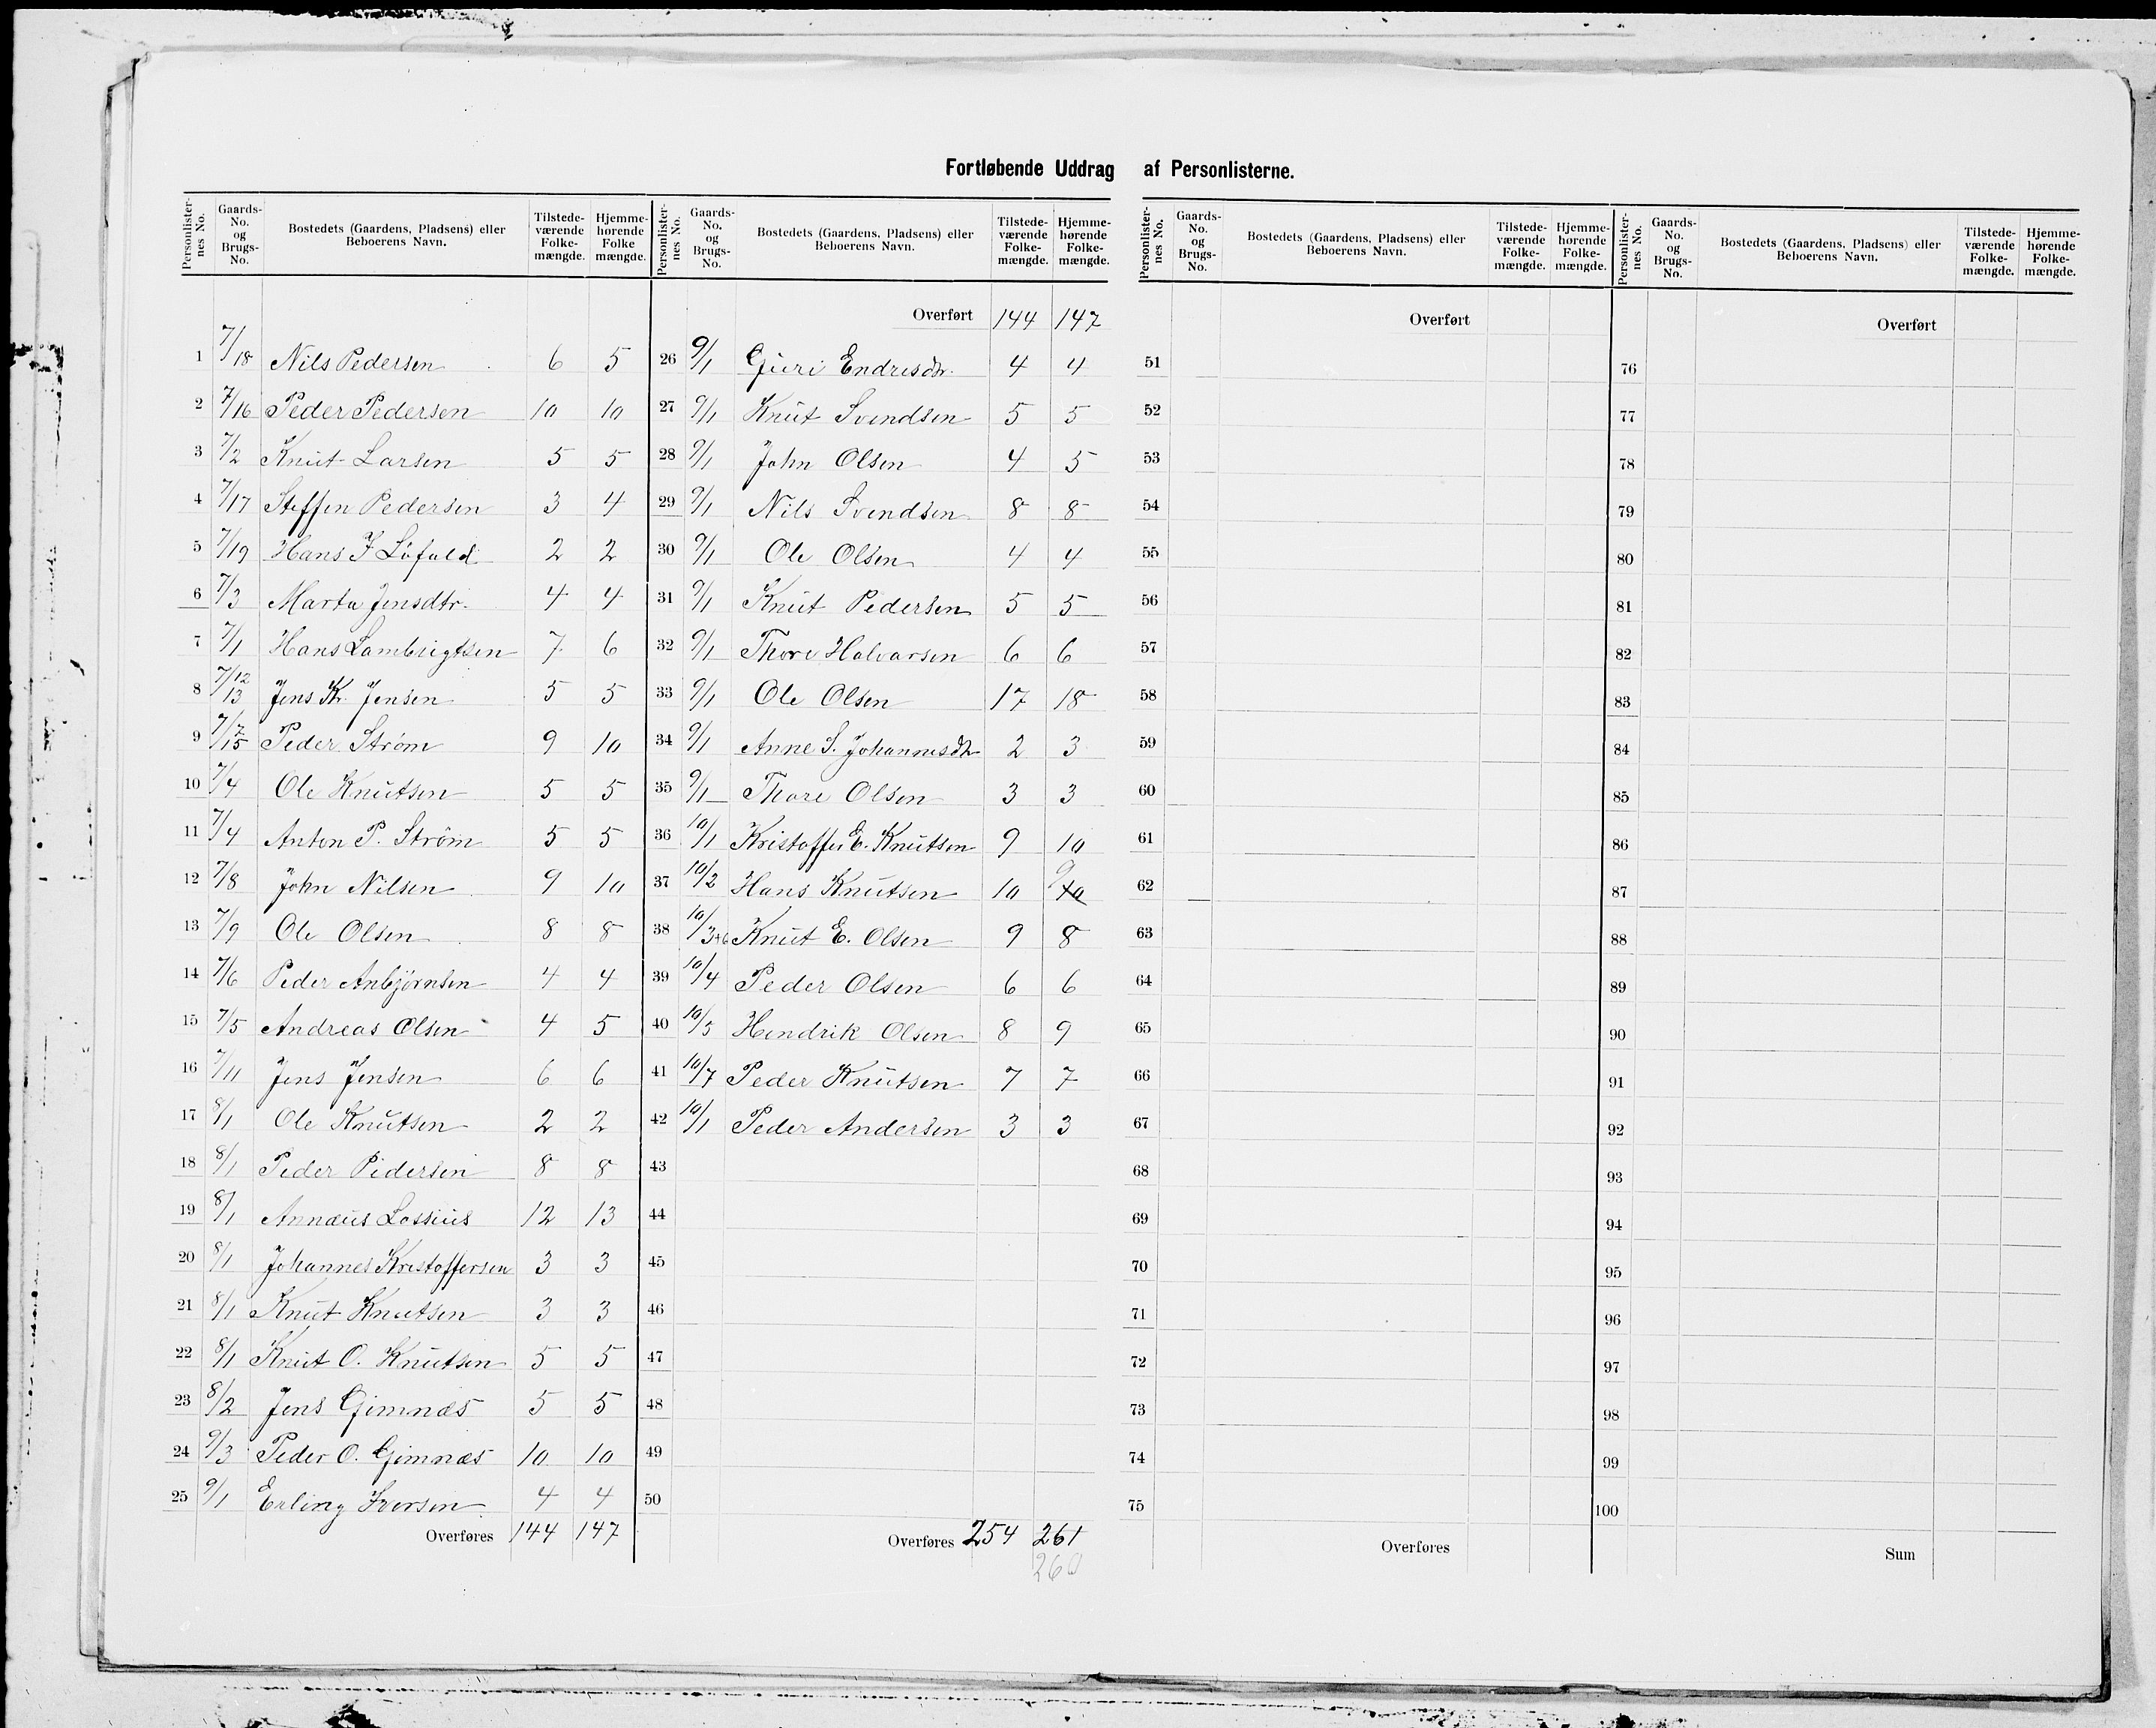 Fortløbende Uddrag af Personlisterne.
Personlister-nes No. Gaards-No. og Brugs-No. Bostedets (Gaardens, Pladsens) eller Beboerens Navn. Tilstede-værende Folke-mængde. Hjemme-hørende Folke mængde.
1 7/18 Nils Pedersen 6 5
2 7/16 Peder Pedersen 10 10
3 7/2 Knut Larsen 5 5
4 7/17 Steffen Pedersen 3 4
5 7/19 Hans J Löfald 2 2
6 7/3 Marta Jensdtr. 4 4
7 7/1 Hans Lambrigtsen 7 6
8 7/12 13 Jens Kr. Jensen 5 5
9 7/7 15 Peder Strøm 9 10
10 7/4 Ole Knutsen 5 5
11 7/4 Anton P. Ström 5 5
12 7/8 John Nilsen 9 10
13 7/9 Ole Olsen 8 8
14 7/6 Peder Anbjørnsen 4 4
15 7/5 Andreas Olsen 4 5
16 7/11 Jens Jensen 6 6
17 8/1 Ole Knutsen 2 2
18 8/1 Peder Pedersen 8 8
19 8/1 Annæus Lossius 12 13
20 8/1 Johannes Kristoffersen 3 3
21 8/1 Knut Knutsen 3 3
22 8/1 Knut O. Knutsen 5 5
23 8/2 Jens Gimnæs 5 5
24 9/3 Peder O. Gimnæs 10 10
25 9/1 Erling Iversen 4 4
Overføres 144 147
Personlister-nes No. Gaards-No. og Brugs-No. Bostedets (Gaardens, Pladsens) eller Beboerens Navn. Tilstede-værende Folke-mængde. Hjemme-hørende Folke-mængde.
Overført 144 147
26 9/1 Guri Endresdtr. 4 4
27 9/1 Knut Svendsen 5 5
28 9/1 John Olsen 4 5
29 9/1 Nils Svendsen 8 8
30 9/1 Ole Olsen 4 4
31 9/1 Knut Pedersen 5 5
32 9/1 Thore Halvarsen 6 6
33 9/1 Ole Olsen 17 18
34 9/1 Anne S. Johannesdtr 2 3
35 9/1 Thore Olsen 3 3
36 10/1 Kristoffer E. Knutsen 9 10
37 10/2 Hans Knutsen 10 9 10
38 10/3+6 Knut E. Olsen 9 8
39 10/4 Peder Olsen 6 6
40 10/5 Hendrik Olsen 8 9
41 10/7 Peder Knutsen 7 7
42 10/1 Peder Andersen 3 3
43
44
45
46
47
48
49
50
Overføres 254 261
260
Personlister-nes No. Gaards-No. og Brugs-No. Bostedets (Gaardens, Pladsens) eller Beboerens Navn. Tilstede-værende Folke-mængde. Hjemme-hørende Folke-mængde.
Overført
51
52
53
54
55
56
57
58
59
60
61
62
63
64
65
66
67
68
69
70
71
72
73
74
75
Overføres
Personlister-nes No. Gaards-No. og Brugs-No. Bostedets (Gaardens, Pladsens) eller Beboerens Navn. Tilstede-værende Folke-mængde. Hjemme-hørende Folke-mængde.
Overført
76
77
78
79
80
81
82
83
84
85
86
87
88
89
90
91
92
93
94
95
96
97
98
99
100
Sum